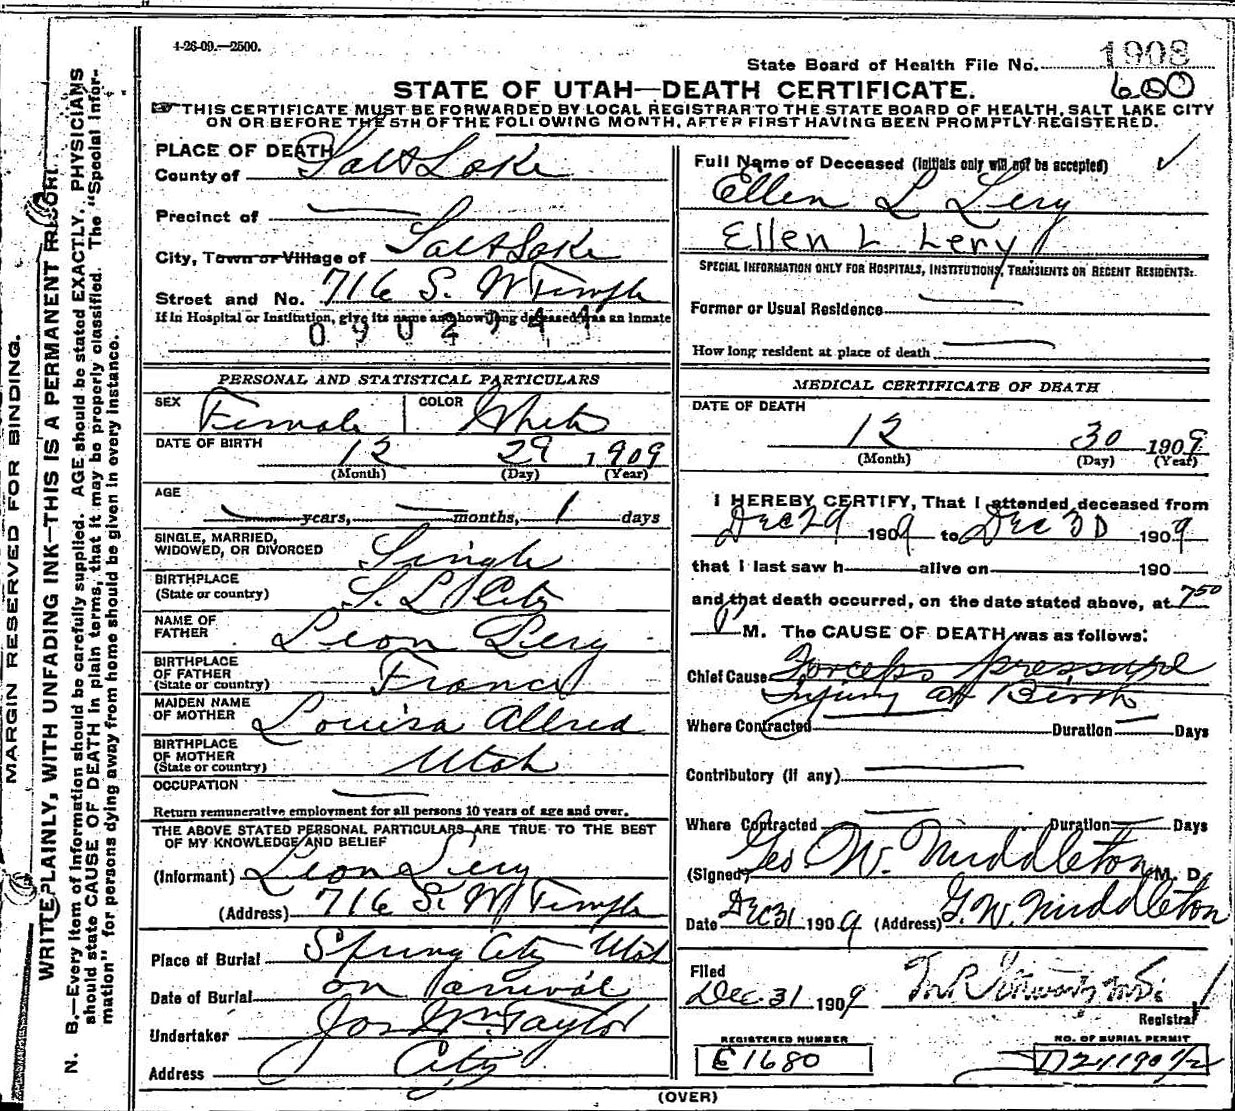 1-26-09.—2500.
State Board of Health File No. 1908
600
STATE OF UTAH—DEATH CERTIFICATE.
THIS CERTIFICATE MUST BE FORWARDED BY LOCAL REGISTRAR TO THE STATE BOARD OF HEALTH, SALT LAKE CITY
ON OR BEFORE THE 5TH OF THE FOLLOWING MONTH, AFTER FIRST HAVING BEEN PROMPTLY REGISTERED.
MARGIN RESERVED FOR BINDING.
WRITE PLAINLY, WITH UNFADING INK—THIS IS A PERMANENT RECORD.
N. B.—Every item of information should be carefully supplied. AGE should be stated EXACTLY. PHYSICIANS
should state CAUSE OF DEATH in plain terms, that it may be properly classified. The "Special Infor-
mation" for persons dying away from home should be given in every instance.
PLACE OF DEATH
County of Salt Lake
Precinct of
City, Town or Village of Salt Lake
Street and No. 716 S. W Temple
If in Hospital or Institution, give its name and how long deceased was an inmate
0902944
PERSONAL AND STATISTICAL PARTICULARS
SEX Female COLOR White
DATE OF BIRTH 12 29 1909
(Month) (Day) (Year)
AGE
years, months, 1 days
SINGLE, MARRIED,
WIDOWED, OR DIVORCED Single
BIRTHPLACE
(State or country) S. L. City
NAME OF
FATHER Leon Levy
BIRTHPLACE
OF FATHER
(State or country) France
MAIDEN NAME
OF MOTHER Louisa Allred
BIRTHPLACE
OF MOTHER
(State or country) Utah
OCCUPATION
Return remunerative employment for all persons 10 years of age and over.
THE ABOVE STATED PERSONAL PARTICULARS ARE TRUE TO THE BEST
OF MY KNOWLEDGE AND BELIEF
(Informant) Leon Levy
(Address) 716 S. W Temple
Place of Burial Spring City Utah
Date of Burial on arrival
Undertaker Jos Wm Taylor
Address City
Full Name of Deceased (Initials only will not be accepted)
Ellen L Levy
Ellen L Levy
SPECIAL INFORMATION ONLY FOR HOSPITALS, INSTITUTIONS, TRANSIENTS OR RECENT RESIDENTS:
Former or Usual Residence
How long resident at place of death
MEDICAL CERTIFICATE OF DEATH
DATE OF DEATH
12 30 1909
(Month) (Day) (Year)
I HEREBY CERTIFY, That I attended deceased from
Dec 29 1909 to Dec 30 1909
that I last saw h alive on 190
and that death occurred, on the date stated above, at 7 50
P M. The CAUSE OF DEATH was as follows:
Chief Cause Forceps pressure
Injury at Birth
Where Contracted Duration Days
Contributory (if any)
Where Contracted Duration Days
(Signed) Geo W. Middleton M. D.
Date Dec 31 1909 (Address) G. W. Middleton
Filed
Dec 31 1909
Registrar
REGISTERED NUMBER
E1680
NO. OF BURIAL PERMIT
(OVER)